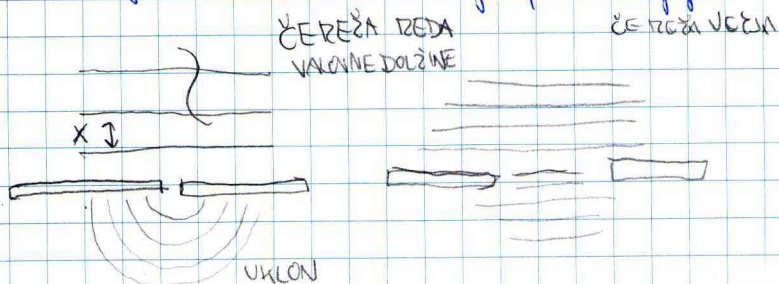 ČE REŽA REDA
VALOVNE DOLŽINE
ČE REŽA VEČJA
X
UKLON